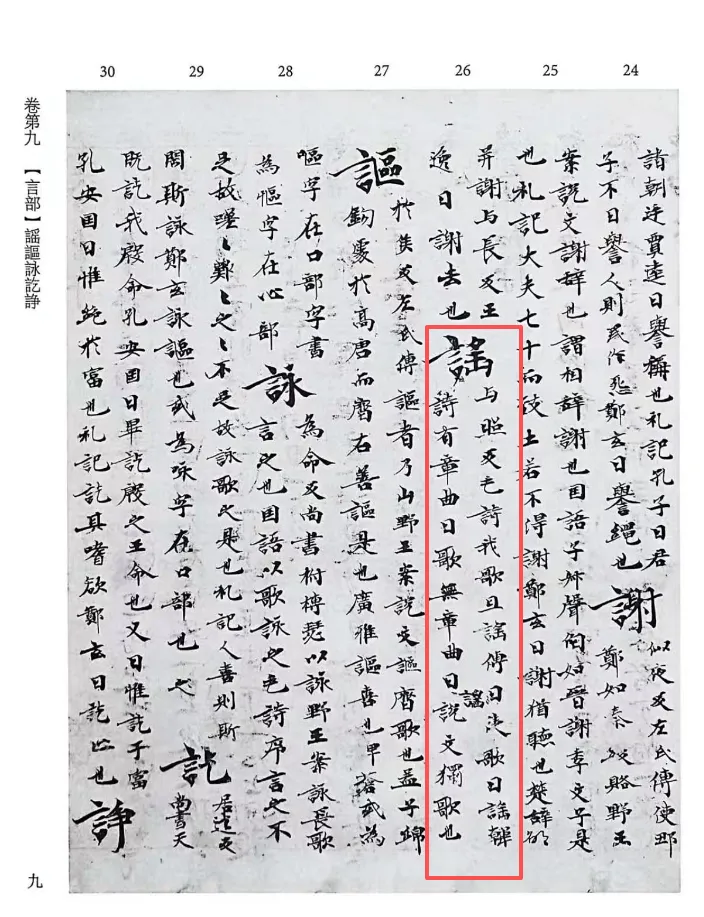 30 29 28 27 26 25 24
諸朝廷賈逵曰譽稱也礼記孔子曰君
子不曰譽人則民作死〻鄭玄曰譽繩也
謝
似夜反左氏傳使耶
鄭如秦致賂野王
案說文謝辞也謂相辞謝也国語子姊聲伯如晉謝季文子是
也礼記大夫七十而致士若不得謝鄭玄曰謝猶聽也楚辞願
并謝与長反王
逸曰謝去也
謠
与照反毛詩我歌且謠傳曰徒歌曰謠韓
詩有章曲曰歌無章曲曰謠說文獨歌也
謳
於侯反左氏傳謳者乃山野王案說文謳齊歌也孟子綿
駒處於高唐而齊右善謳是也廣雅謳喜也甲蒼或為
嘔字在口部字書
為慪字在心部
詠
為命反尚書拊搏瑟以詠野王案詠長歌
言之也国語以歌詠之毛詩序言之不
足故嗟〻歎〻之〻不足故詠歌之是也礼記人喜則斯
陶斯詠鄭玄詠謳也或為咏字在口部也之
訖
居迄反
尚書天
既訖我殷命孔安国曰畢訖殷之王命也又曰惟訖于富
孔安国曰惟絶於富也礼記訖其嗜欲鄭玄曰訖止也
諍
卷第九 【言部】謠謳詠訖諍
九